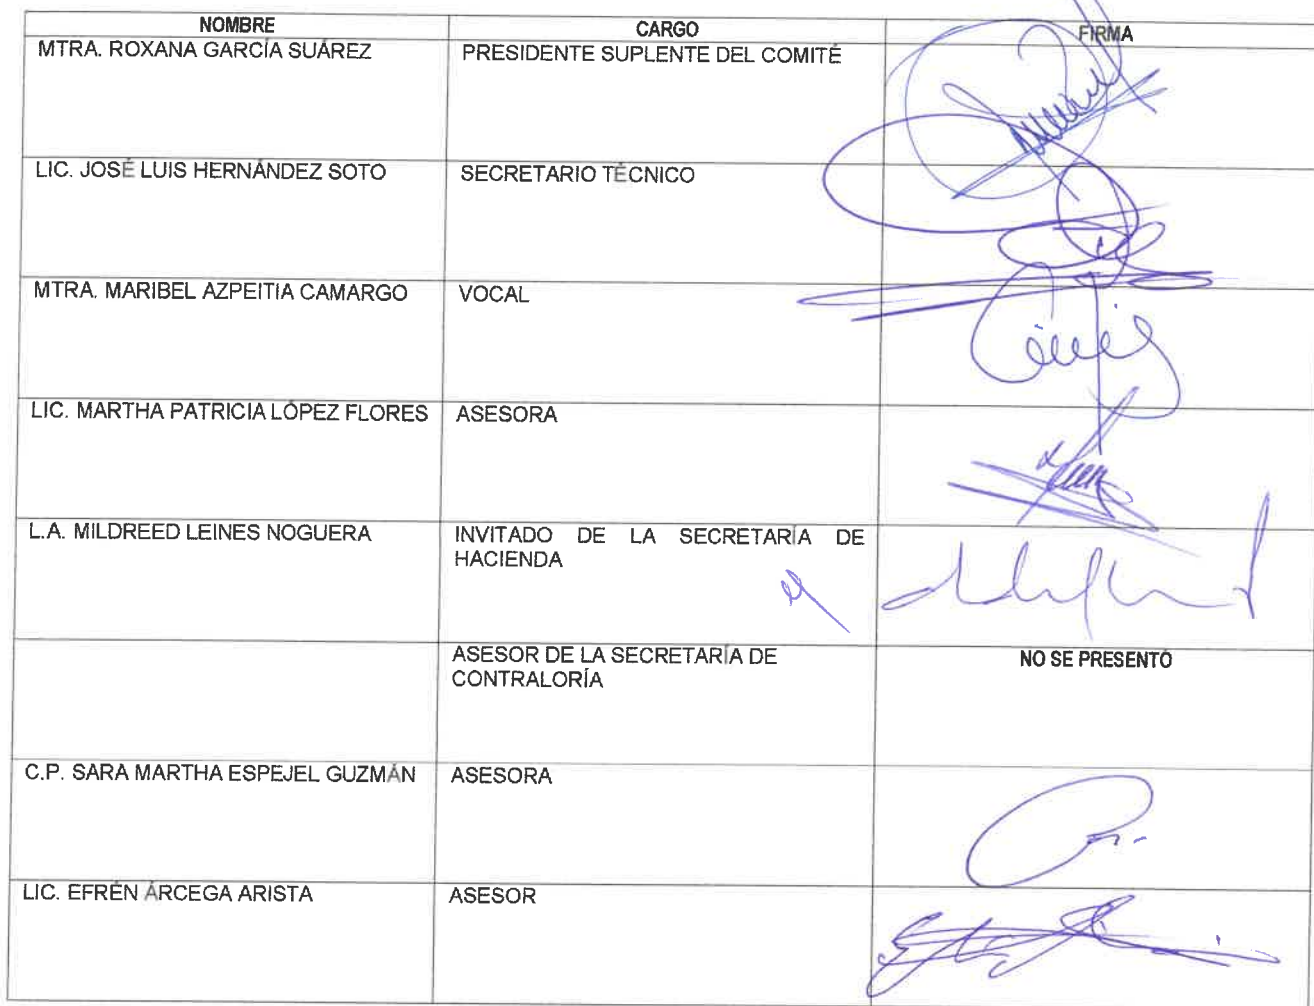 NOMBRE CARGO FIRMA
MTRA. ROXANA GARCÍA SUÁREZ PRESIDENTE SUPLENTE DEL COMITÉ
LIC. JOSÉ LUIS HERNÁNDEZ SOTO SECRETARIO TÉCNICO
MTRA. MARIBEL AZPEITIA CAMARGO VOCAL
LIC. MARTHA PATRICIA LÓPEZ FLORES ASESORA
L.A. MILDREED LEINES NOGUERA INVITADO DE LA SECRETARÍA DE
HACIENDA
ASESOR DE LA SECRETARÍA DE NO SE PRESENTÓ
CONTRALORÍA
C.P. SARA MARTHA ESPEJEL GUZMÁN ASESORA
LIC. EFRÉN ÁRCEGA ARISTA ASESOR